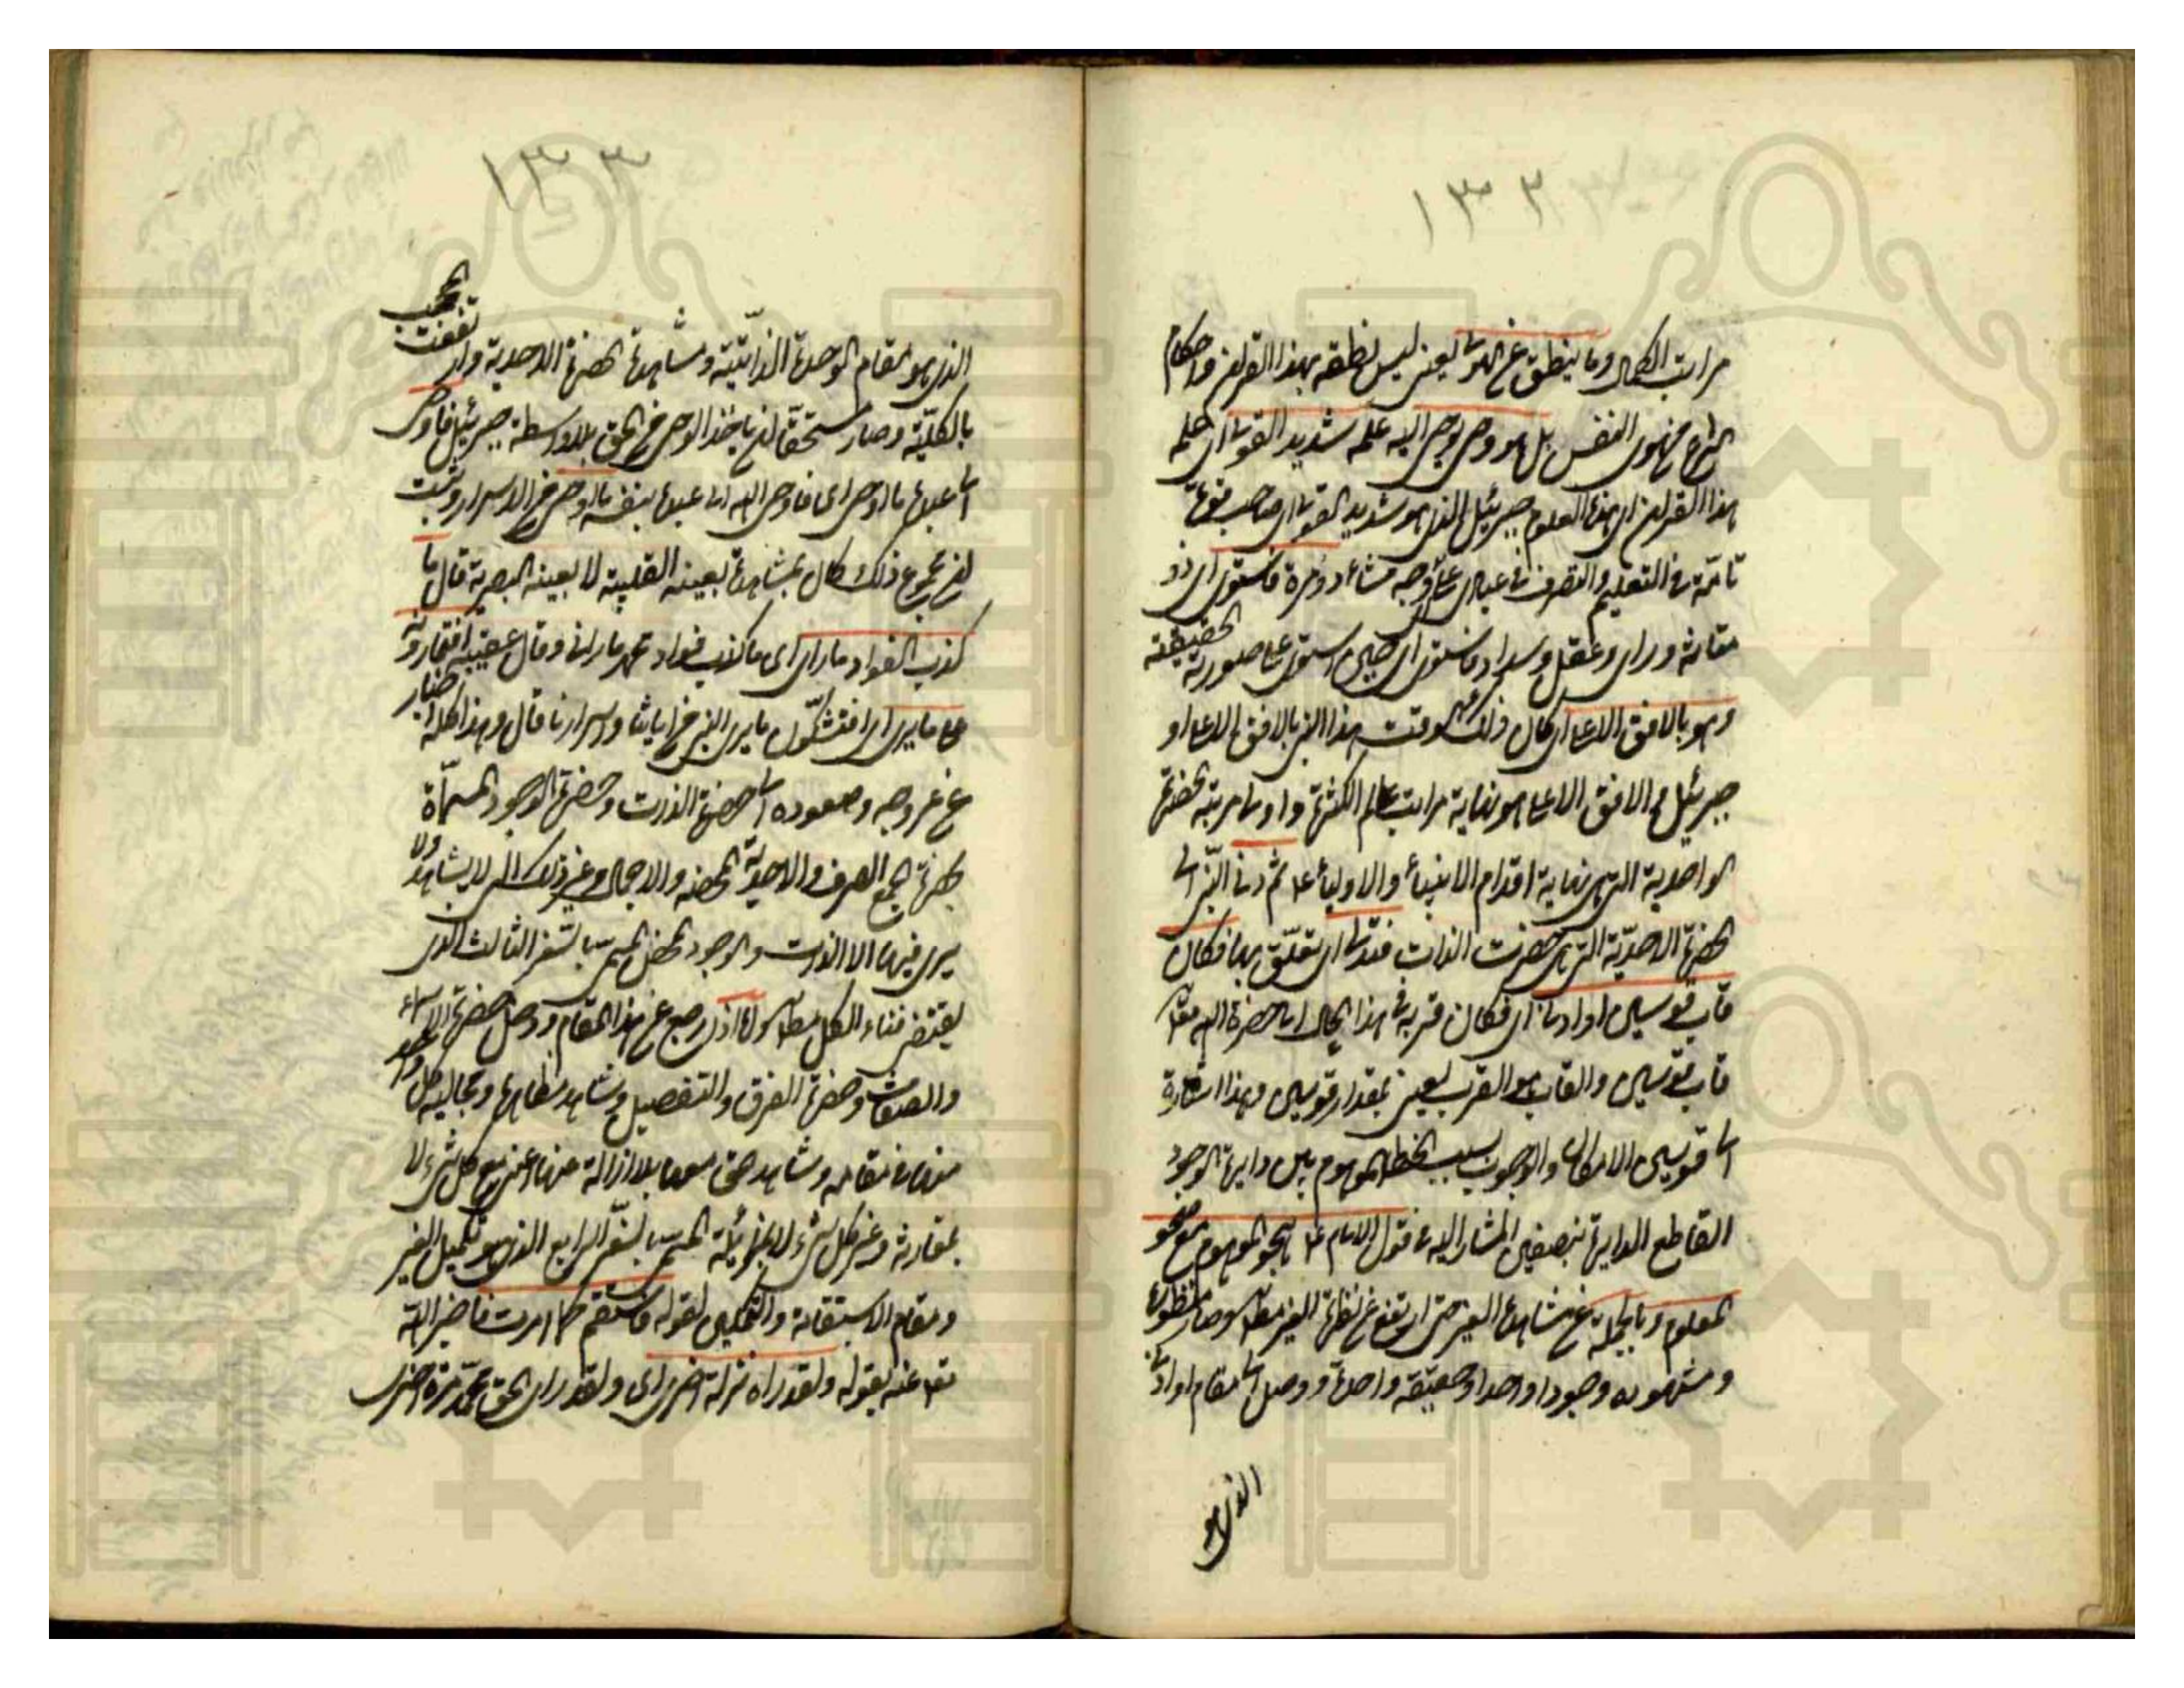 ١٣٢
مراتب الكمال وما ينطق عن الهوى يعنى ليس نطقه بهذا القران واحكام
الشرع من هوى النفس بل هو وحى يوحى اليه علمه شديد القوى اى علمه
هذا القران اى هذه العلوم جبرئيل الذى هو شديد القوى اى صاحب قوة
تامة فى التعليم والتصرف فى عبادى على اى وجه شاء ذو مرة فاستوى اى ذو
متانة وراى وعقل وسداد فاستوى اى جبرئيل استوى على صورته الحقيقة
وهو بالافق الاعلى اى كان ذلك فى وقت هذا النبى بالافق الاعلى او
جبرئيل والافق الاعلى هو نهاية مراتب عالم الكثرة واول مرتبة الحضرة
الواحدية التى هى نهاية اقدام الانبياء والاولياء ع ثم دنا النبى الى
الحضرة الاحدية التى هى حضرت الذات فتدلى اى تعلق بها فكان
قاب قوسين او ادنى اى فكان قربه فى هذا الحال الى حضرة الله مقدار
قاب قوسين والقاب هو القرب يعنى بمقدار قوسين وهذا اشارة
الى قوسى الامكان والوجوب بسبب الخط الموهوم بين دايرة الوجود
القاطع الدايرة بنصفين المشار اليه فى قول الامام ع محو الموهوم مع صحو
المعلوم وبالجملة عن مشاهدة الغير حتى ارتفع عن نظره الغير مطلقا وصار منظوره
ومشهوده وجودا واحدا وحقيقة واحدة ووصل الى مقام او ادنى
الذى هو
١٣٣
الذى هو مقام الوحدة الذاتية ومشاهدة الحضرة الاحدية وارتفعت الحجب
بالكلية وصار مستحقا لان ياخذ الوحى من الحق بلا واسطة جبرئيل فاوحى
الى عبده ما اوحى اى فاوحى الله الى عبده بنفسه ما اوحى من الاسرار وثبت
ان مجموع ذلك كان بمشاهدة بعينه القلبية لا بعينه البصرية قال ما
كذب الفؤاد ما راى اى ما كذب فؤاد محمد ما راه وقال عقيبه افتمارونه
على ما يرى اى افتشكون ما يرى النبى من اياتنا واسرارنا قال وهذا كله اخبار
عن عروجه وصعوده الى حضرة الذات وحضرة الوجود المسماة
بحضرة الجمع الصرف والاحدية المحضه والاجمال وغير ذلك التى لا يشاهد ولا
يرى فيها الا الذات والوجود المحض المسمى بالسفر الثالث الذى
يقتضى فناء الكل مطلقا ولما اذن رجع عن هذا المقام ووصل حضرة الاسماء
والصفات وحضرة الفرق والتفصيل وشاهد مظاهرها ومجاليه كل واحد
منها فى مقامه وشاهد الحق معها بلا ازالة عنها اعنى مع كل شىء لا
بمقارنة وغير كل شىء لا بمزايلة المسمى بالسفر الرابع الذى هو تكميل الغير
ومقام الاستقامة والتمكين لقوله فاستقم كما امرت فاخبر الله
تعالى عنه بقوله ولقد راه نزلة اخرى اى ولقد راى الحق محمد مرة اخرى